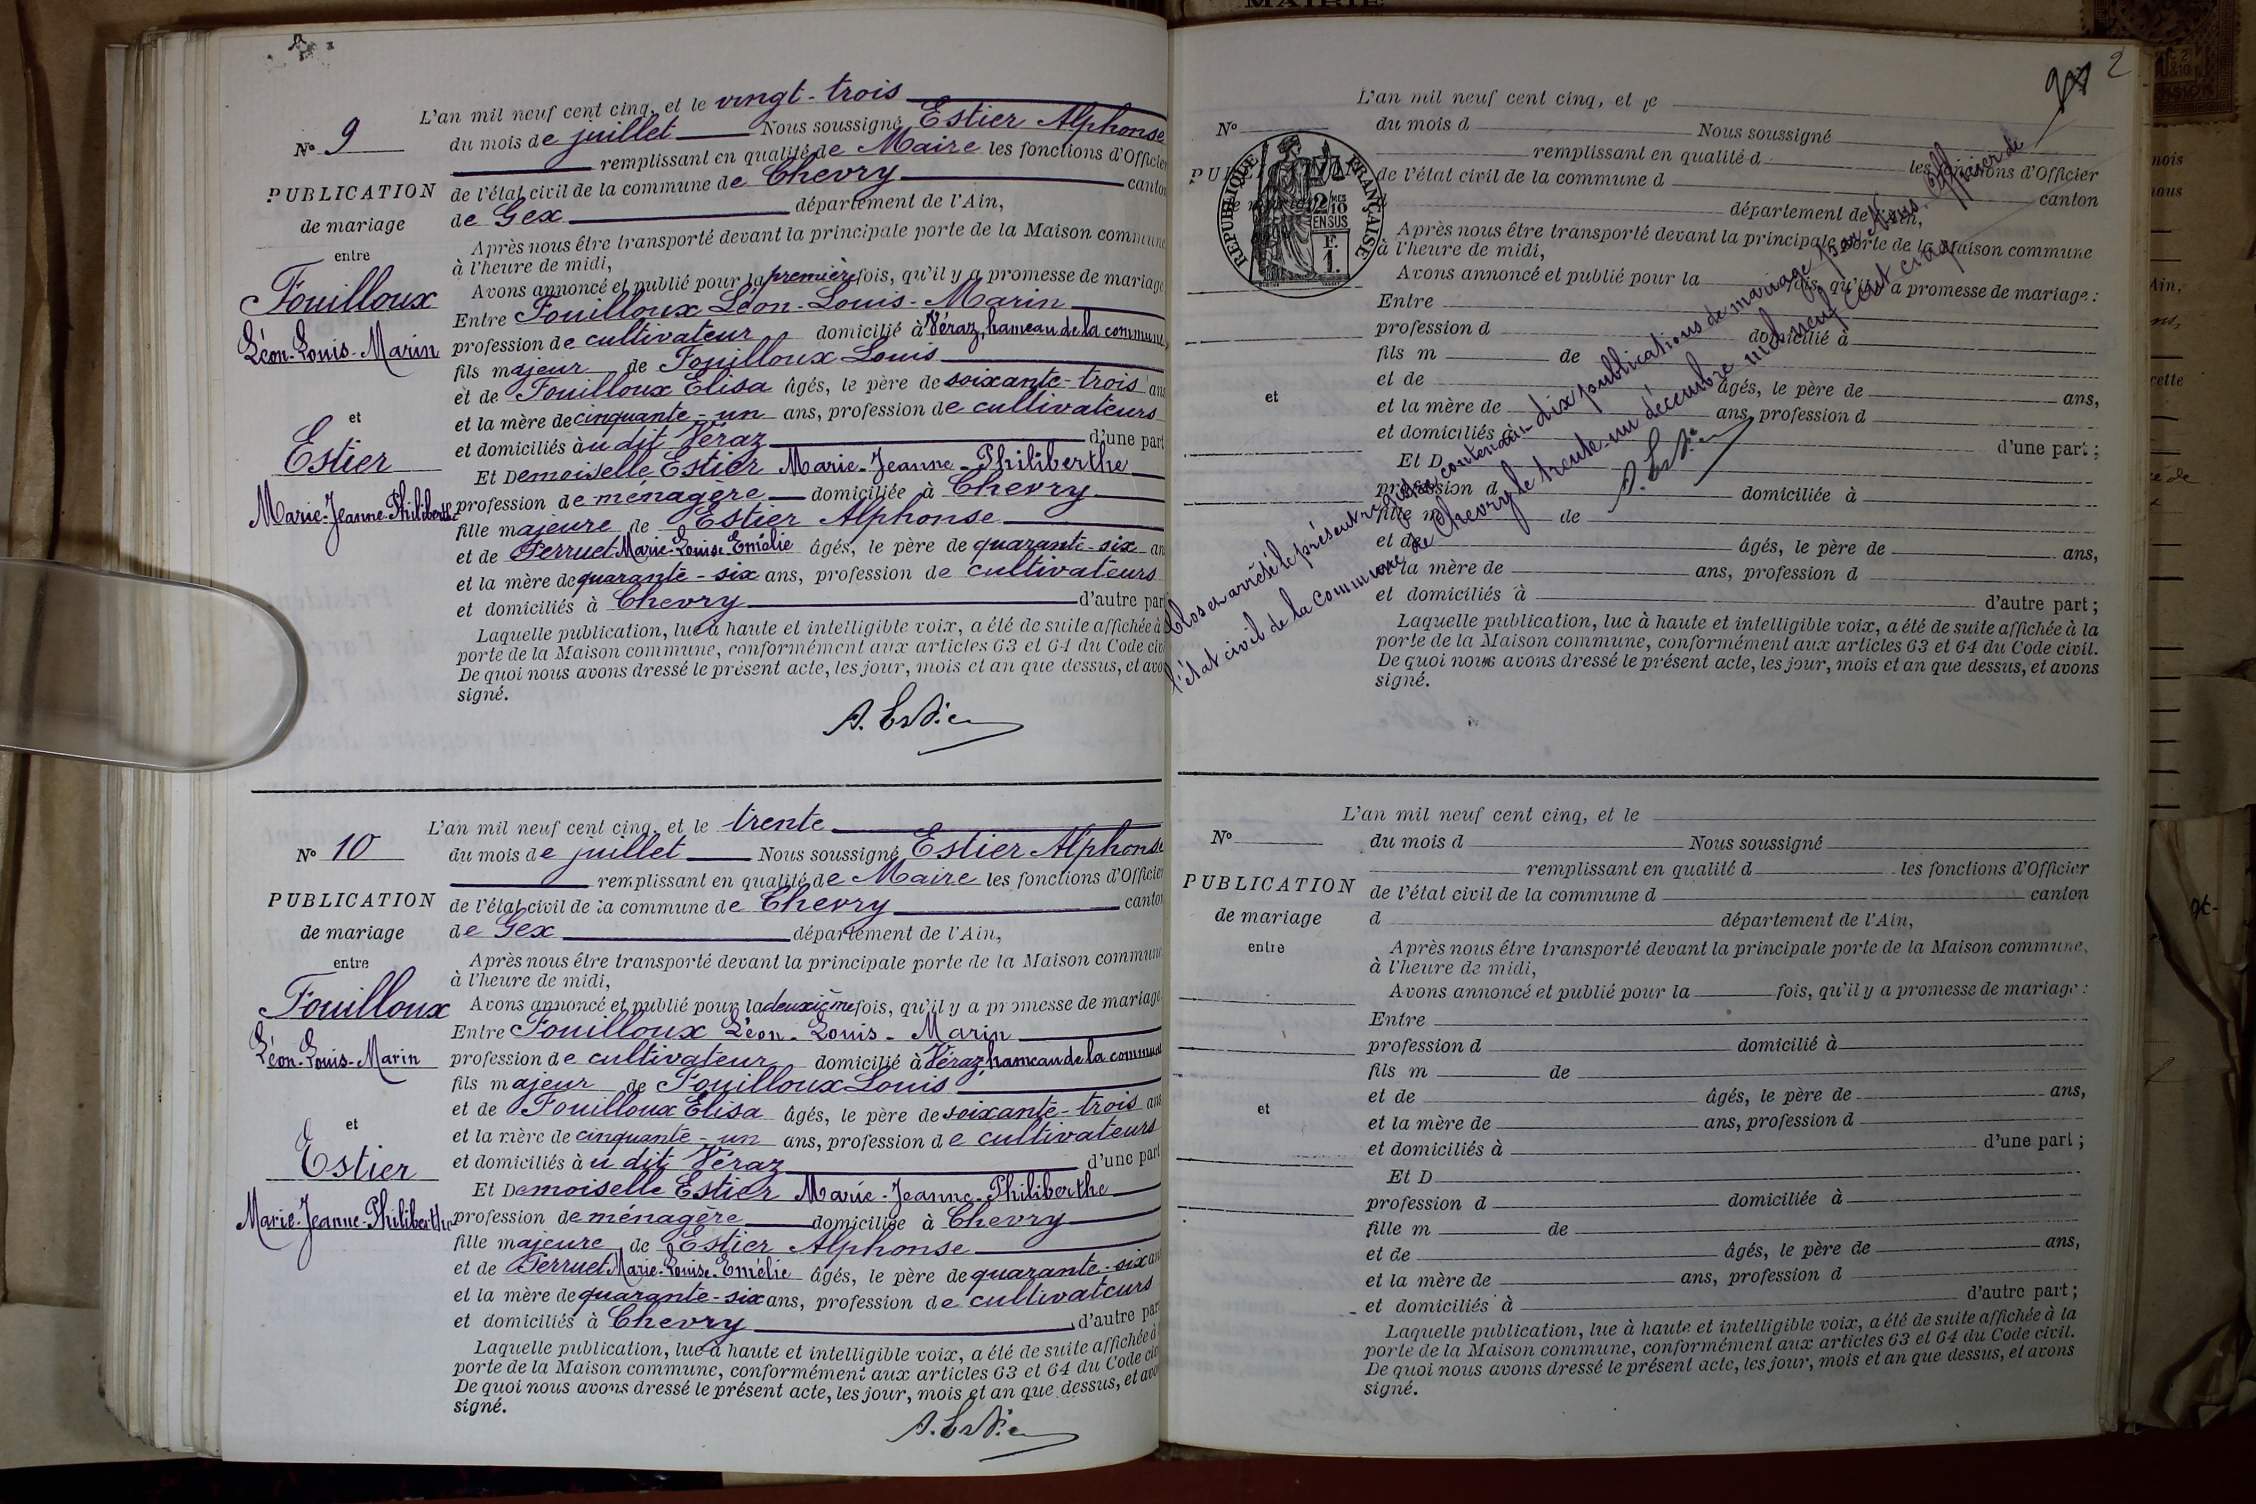 L'an mil neuf cent cinq, et le vingt-trois
N° 9
du mois de juillet Nous soussigné Estier Alphonse
remplissant en qualité de Maire les fonctions d'Officier
PUBLICATION
de mariage
entre
de l'état civil de la commune de Chevry canton
de Gex département de l'Ain,
Après nous être transporté devant la principale porte de la Maison commune
à l'heure de midi,
Avons annoncé et publié pour la première fois, qu'il y a promesse de mariage
Fouilloux
Léon-Louis-Marin
et
Estier
Marie-Jeanne-Philiberthe
Entre Fouilloux Léon-Louis-Marin
profession de cultivateur domicilié à Véraz, hameau de la commune
fils majeur de Fouilloux Louis
et de Fouilloux Elisa âgés, le père de soixante-trois ans
et la mère de cinquante-un ans, profession de cultivateurs
et domiciliés à u dit Véraz d'une part
Et Demoiselle Estier Marie-Jeanne-Philiberthe
profession de ménagère domiciliée à Chevry
fille majeure de Estier Alphonse
et de Perruet Marie-Louise-Emélie âgés, le père de quarante-six an
et la mère de quarante-six ans, profession de cultivateurs
et domiciliés à Chevry d'autre part
Laquelle publication, lue à haute et intelligible voix, a été de suite affichée à
porte de la Maison commune, conformément aux articles 63 et 64 du Code civ
De quoi nous avons dressé le présent acte, les jour, mois et an que dessus, et avo
signé.
A. Estier
L'an mil neuf cent cinq, et le trente
N° 10
du mois de juillet Nous soussigné Estier Alphonse
remplissant en qualité de Maire les fonctions d'Officier
PUBLICATION
de mariage
entre
de l'état civil de la commune de Chevry canton
de Gex département de l'Ain,
Après nous être transporté devant la principale porte de la Maison commune
à l'heure de midi,
Avons annoncé et publié pour la deuxième fois, qu'il y a promesse de mariage
Fouilloux
Léon-Louis-Marin
et
Estier
Marie-Jeanne-Philiberthe
Entre Fouilloux Léon-Louis-Marin
profession de cultivateur domicilié à Véraz, hameau de la commune
fils majeur de Fouilloux Louis
et de Fouilloux Élisa âgés, le père de soixante-trois ans
et la mère de cinquante-un ans, profession de cultivateurs
et domiciliés à u dit Véraz d'une part
Et Demoiselle Estier Marie-Jeanne-Philiberthe
profession de ménagère domiciliée à Chevry
fille majeure de Estier Alphonse
et de Perruet Marie-Louise-Emélie âgés, le père de quarante-six ans
et la mère de quarante-six ans, profession de cultivateurs
et domiciliés à Chevry d'autre par
Laquelle publication, lue à haute et intelligible voix, a été de suite affichée à
porte de la Maison commune, conformément aux articles 63 et 64 du Code civ
De quoi nous avons dressé le présent acte, les jour, mois et an que dessus, et avo
signé.
A. Estier
MAIRIE
2
L'an mil neuf cent cinq, et le
N°
du mois d Nous soussigné
remplissant en qualité d les fonctions d'Officier
RÉPUBLIQUE FRANÇAISE
2/10 MES
EN SUS
F.
1.
de l'état civil de la commune d canton
département de l'Ain,
Après nous être transporté devant la principale porte de la Maison commune
à l'heure de midi,
Avons annoncé et publié pour la fois, qu'il y a promesse de mariage :
Entre
profession d domicilié à
fils m de
et de âgés, le père de ans,
et
et la mère de ans, profession d
et domiciliés à d'une part ;
Et D
profession d domiciliée à
fille m de
et de âgés, le père de ans,
et la mère de ans, profession d
et domiciliés à d'autre part ;
Laquelle publication, lue à haute et intelligible voix, a été de suite affichée à la
porte de la Maison commune, conformément aux articles 63 et 64 du Code civil.
De quoi nous avons dressé le présent acte, les jour, mois et an que dessus, et avons
signé.
Clos et arrêté le présent registre contenant dix publications de mariage par Nous, Officier de
l'état civil de la commune de Chevry le trente-un décembre mil neuf cent cinq
A. Estier
L'an mil neuf cent cinq, et le
N°
du mois d Nous soussigné
remplissant en qualité d les fonctions d'Officier
PUBLICATION
de mariage
entre
de l'état civil de la commune d canton
d département de l'Ain,
Après nous être transporté devant la principale porte de la Maison commune,
à l'heure de midi,
Avons annoncé et publié pour la fois, qu'il y a promesse de mariage :
Entre
profession d domicilié à
fils m de
et de âgés, le père de ans,
et
et la mère de ans, profession d
et domiciliés à d'une part ;
Et D
profession d domiciliée à
fille m de
et de âgés, le père de ans,
et la mère de ans, profession d
et domiciliés à d'autre part ;
Laquelle publication, lue à haute et intelligible voix, a été de suite affichée à la
porte de la Maison commune, conformément aux articles 63 et 64 du Code civil.
De quoi nous avons dressé le présent acte, les jour, mois et an que dessus, et avons
signé.